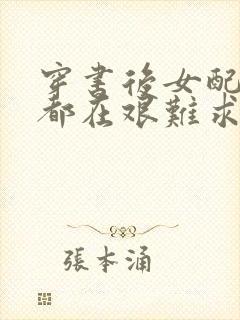 穿書後女配
都在艰難求
張本涌